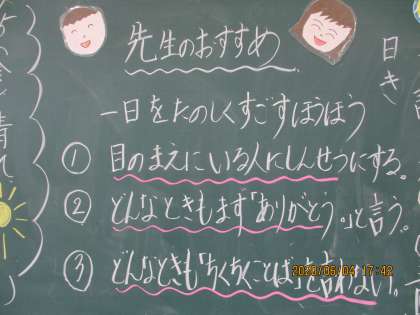 先生のおすすめ
一日をたのしくすごすほうほう
① 目のまえにいる人にしんせつにする。
② どんなときもまず「ありがとう。」と言う。
③ どんなときも「ちくちくことば」を言わない。
2026/06/04 17:42
日き